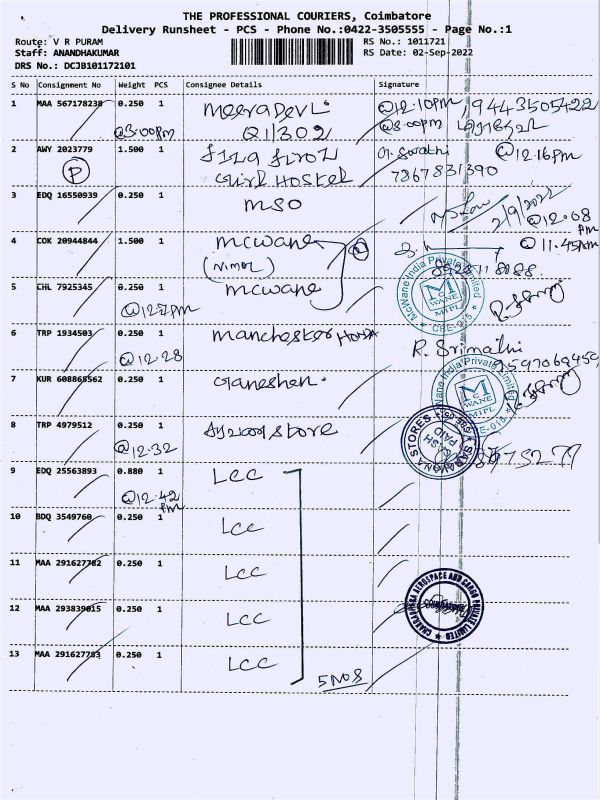 THE PROFESSIONAL COURIERS, Coimbatore
Delivery Runsheet - PCS - Phone No.:0422-3505555 - Page No.:1
Route: V R PURAM
Staff: ANANDHAKUMAR
DRS No.: DCJB101172101
RS No.: 1011721
RS Date: 02-Sep-2022
S No Consignment No Weight PCS Consignee Details Signature
1 MAA 567178238 0.250 1 Meera Devi @12.10pm, 9443505422
@3.00pm Q1/302 @3.00pm
2 AWY 2023779 1.500 1 @12.16pm
P Girl Hostel 7867831390
3 EDQ 16550939 0.250 1 MSO 2/9/2022 @12.08 pm
4 COK 20944844 1.500 1 mcwane @11.45am
(Nimal)
5 CHL 7925345 0.250 1 mcwane
McWane India Private Limited
McWANE
MIPL
CBE-015
6 TRP 1934503 0.250 1 Manchester Honda R. Srimathi
@12.28 9597069459
7 KUR 608868562 0.250 1 Ganeshan.
McWane India Private Limited
McWANE
MIPL
8 TRP 4979512 0.250 1 store
@12.32
SARAVANA STORES
CASH
PAID
9 EDQ 25563893 0.880 1 LCC
@12.42 pm
10 BDQ 3549760 0.250 1 LCC
11 MAA 291627782 0.250 1 LCC
12 MAA 293839015 0.250 1 LCC
AEROSPACE AND CARGO PRIVATE LIMITED
13 MAA 291627783 0.250 1 LCC
5 NOS